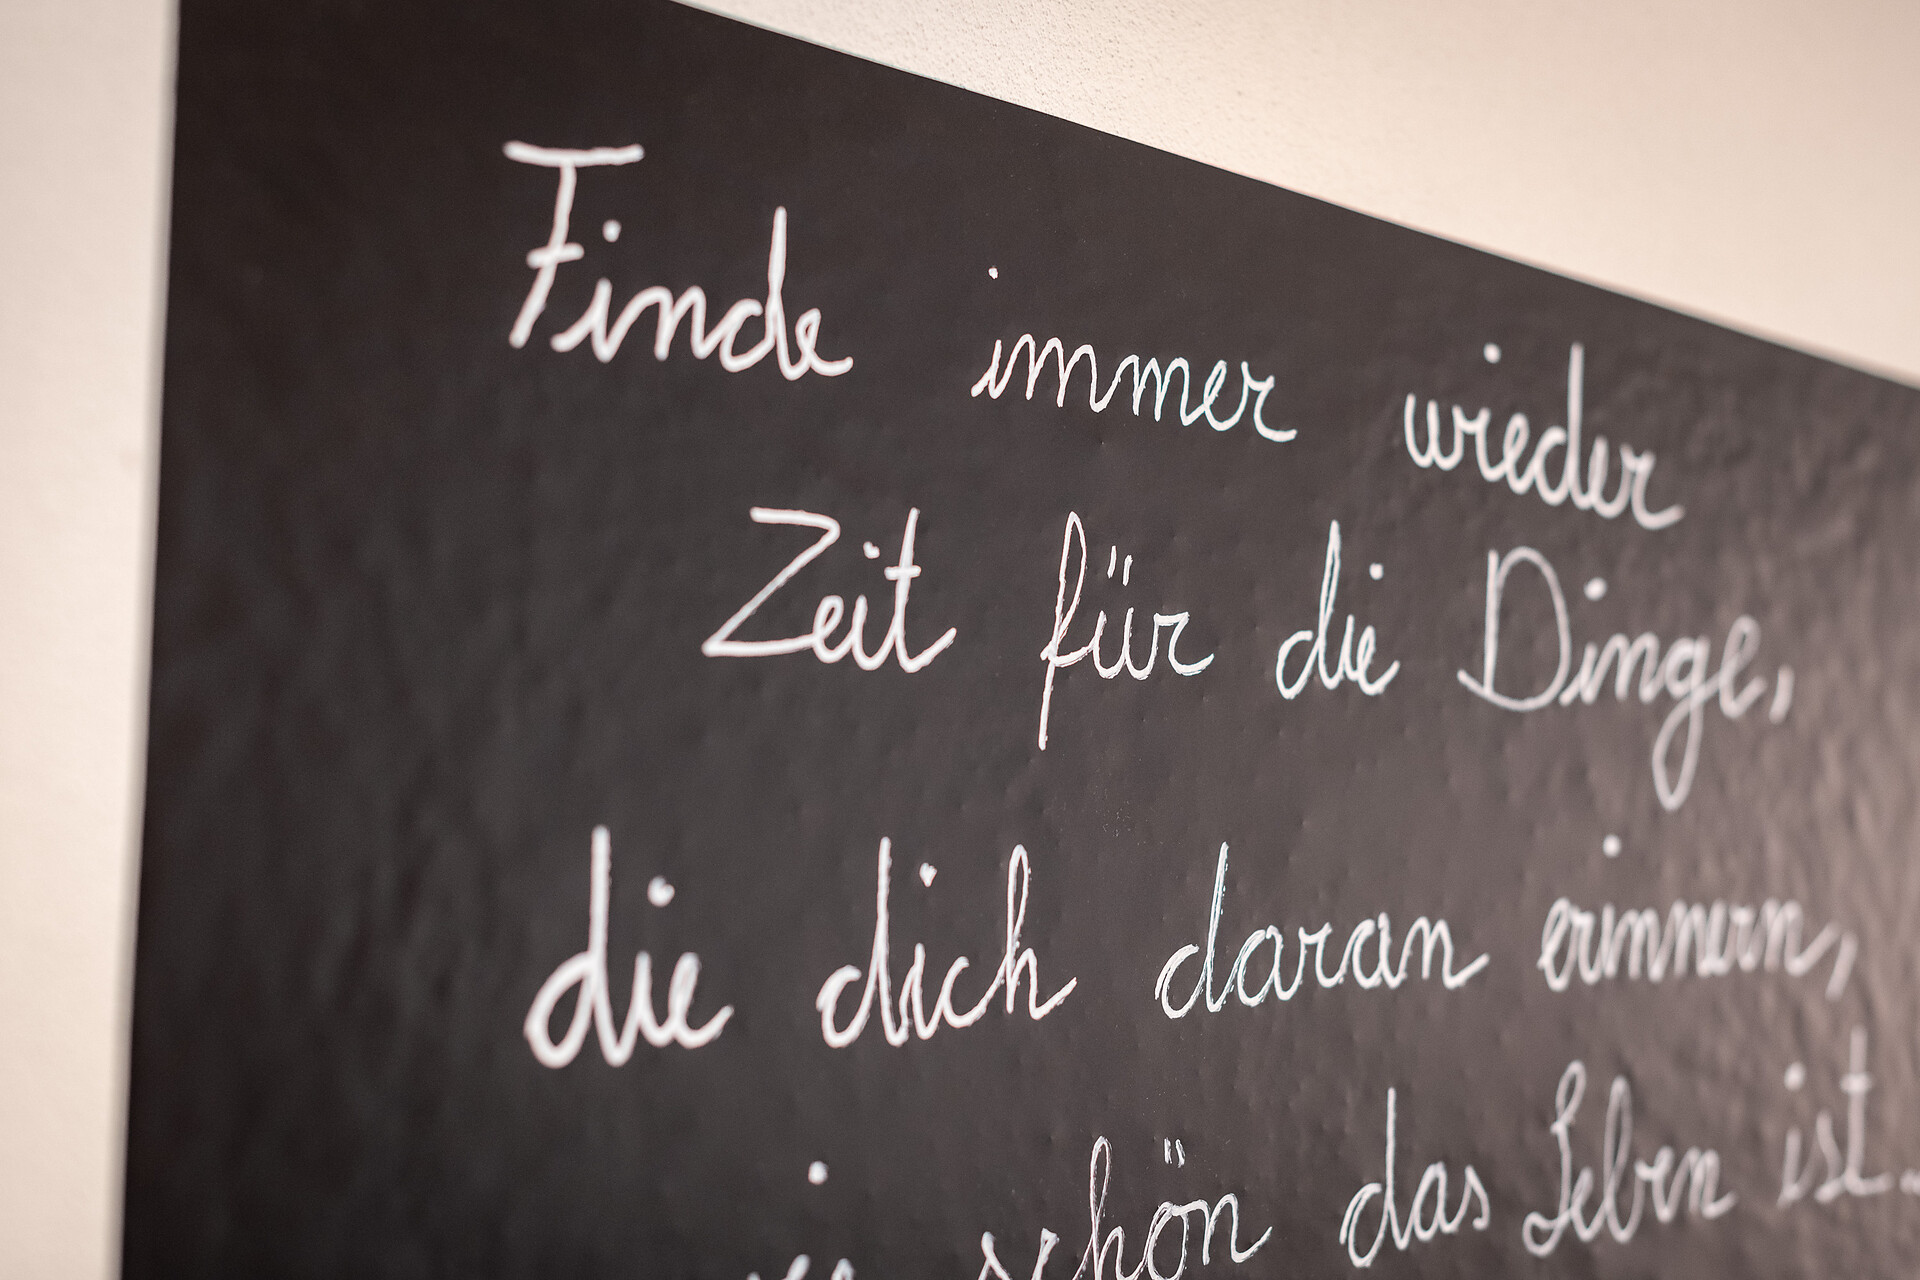 Finde immer wieder
Zeit für die Dinge,
die dich daran erinnern,
wie schön das Leben ist.